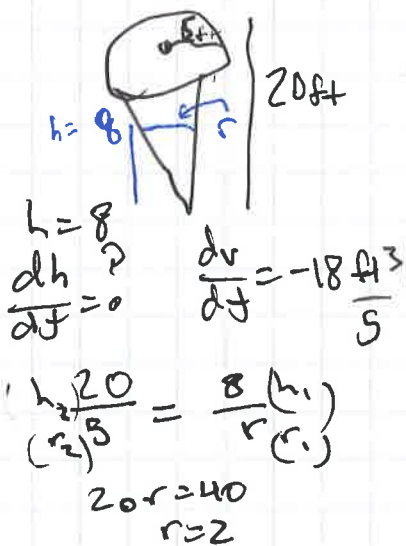 5ft
20ft
h = 8
r
h = 8
dh/dt = ?
dv/dt = -18 ft³/s
(h₂) 20 / (r₂) 5 = 8 (h₁) / r (r₁)
20r = 40
r = 2